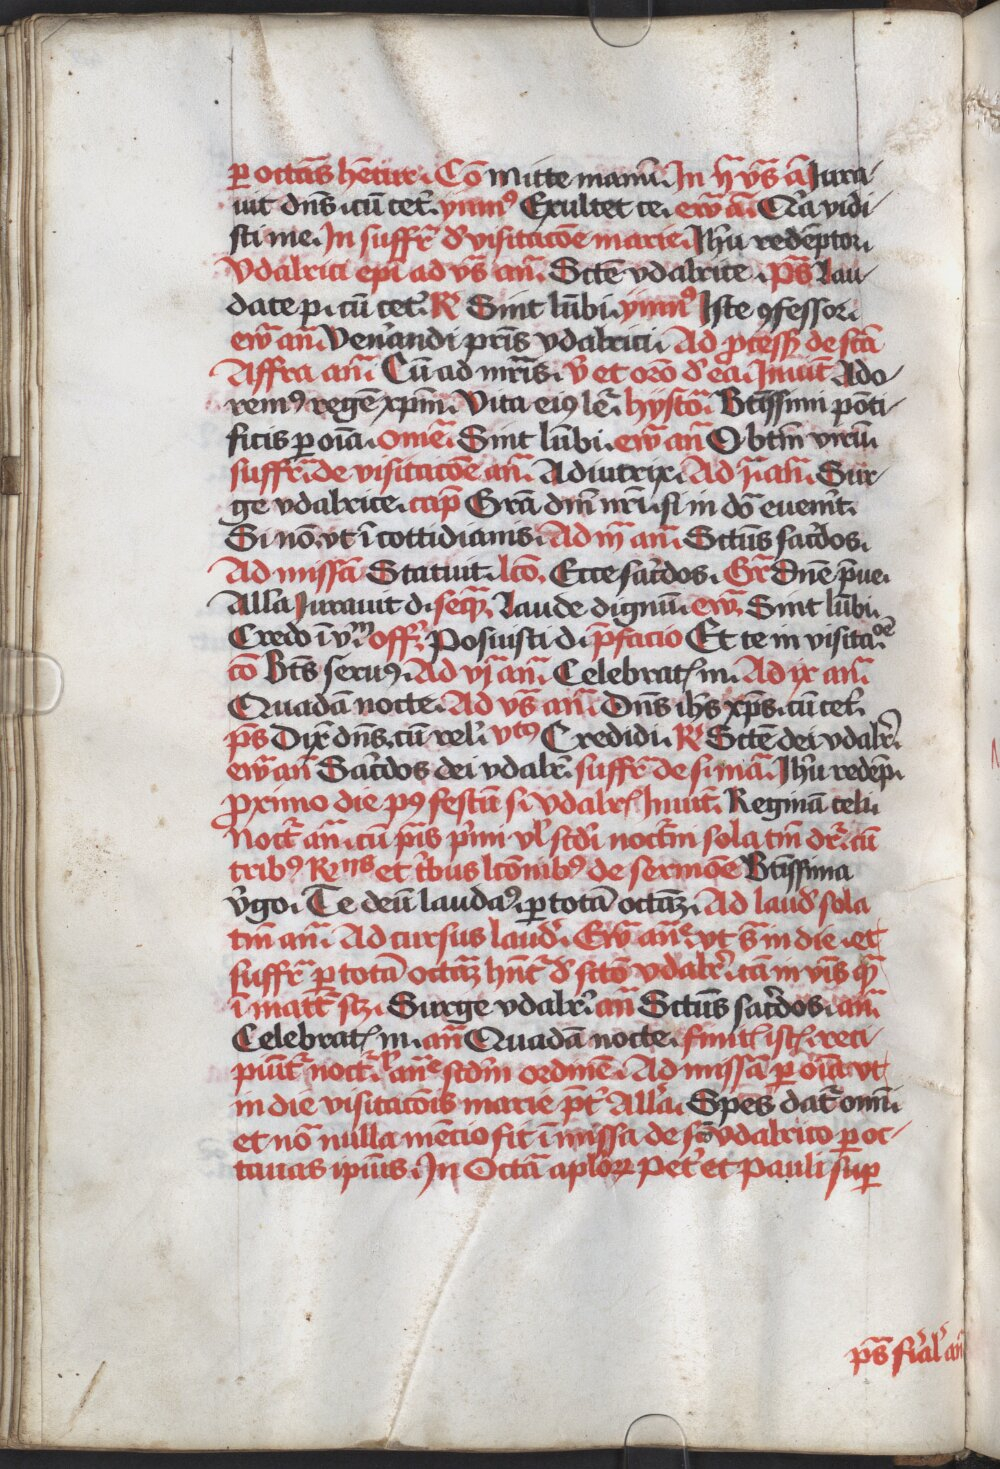 p octauas hētur. Cō Mitte manū. In ij vs̄ an̄ Iura
uit dn̄s. cū cet̉. ymn⁹ Exultet ce. ew̄ an̄ Quia vidi
sti me. In suffr̄ d̉ visitacōe marie. Ihū redēptor.
Vdalrici epī ad vs̄ an̄. Sctē vdalrice. ps̄ Lau
date p. cū cet̉. R̉ Sint lūbi. ymn⁹ Iste ꝯfessor.
ew̄ an̄ Ven̉andi pr̄is vdalrici. Ad ꝓcess̄ de sctā
Affra an̄. Cū ad mr̄is. v̉ et orō d̉ ea. Inuit̄ Ado
rem⁹ regē xp̄m. Vita ei⁹ lēr. hystō. Bt̄issimi pōti
ficis p oīa. omēl. Sint lūbi. ew̄ an̄ O btm̄ virū.
suffr̄. de visitacōe an̄. Adiutrix. Ad j an̄. Sur
ge vdalrice. cap̄ Grā dm̄ nr̄i. si in dō euen̉it.
Si nō. vt ī cottidianis. Ad iij an̄. Sctūs sac̉dos.
Ad missā Statuit. lcō. Ecce sac̉dos. Gr̄ Dn̄e p̄ue.
Alla Iurauit d. seqꝫ. Laude dignū. ew̄. Sint lūbi.
Credo ī vnū. off̄. Posuisti d. p̄facio Et te in visitacōe
cō Btūs seru⁹. Ad vj an̄. Celebrat̉ m. Ad ix an̄
Quadā nocte. Ad vs̄ an̄. Dn̄s ihs̄ xp̄s. cū cet̉.
ps̄ Dix̄ dn̄s. cū rel̉. vlt⁹ Credidi. R̉ Sctē dei vdalr̉.
ew̄ an̄ Sac̉dos dei vdalr̄. suffr̄ de s̄. ma. Ihū redēp̄.
ꝓximo die p⁹ festū s̄. vdalr̉ Inuit̄. Reginā celi.
Noct̄ an̄. cū p̄is p̉mi vl̉ scdī noctⁿī sola tm̄ dr̄. cū
trib⁹ R̉ⁿⁱˢ et t̉bus lcōnib⁹ de sermōe Bt̄issima
v̉go. Te deū lauda⁹. p totā octaꝫ. Ad laud̉ sola
tm̄ an̄. Ad cursus laud̉. Ew̄ an̄e vt s̄ in die. et
suffr̄ p totā octaꝫ hn̄t̄ d̉ sctō vdalr̉. tā in vīs qꝫ
ī matt̄ sꝫ. Surge vdalr̉. an̄ Sctūs sac̉dos. an̄
Celebrat̉ m. an̄ Quadā nocte. simil̉ ist̉. reci
piūt̄ noct̄. an̄e scdm̄ ordinē. Ad missā p oīa vt
in die visitacōis marie p̄t̉ Alla. Spēs dat̄ omī.
et nō nulla mēcio fit ī missa de scō vdalrico p oc
tauas ipīus. In Octā aplōꝝ Pet̉ et Pauli sup̄
ps̄ fỉal̉ an̄